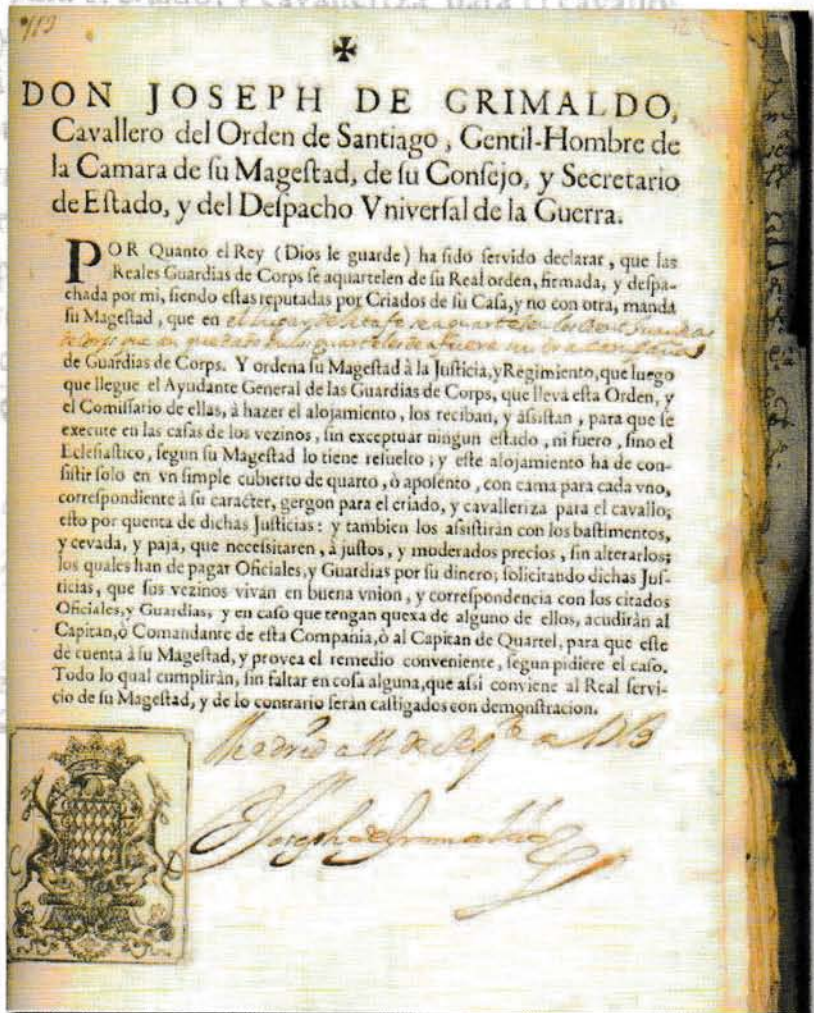 ✠
DON JOSEPH DE GRIMALDO,
Cavallero del Orden de Santiago, Gentil-Hombre de
la Camara de ſu Mageſtad, de ſu Conſejo, y Secretario
de Eſtado, y del Deſpacho Vniverſal de la Guerra.
POR Quanto el Rey (Dios le guarde) ha ſido ſervido declarar, que las
Reales Guardias de Corps ſe aquartelen de ſu Real orden, firmada, y deſpa-
chada por mi, ſiendo eſtas reputadas por Criados de ſu Caſa, y no con otra, manda
ſu Mageſtad, que en el lugar de
de Guardias de Corps. Y ordena ſu Mageſtad à la Juſticia, y Regimiento, que luego
que llegue el Ayudante General de las Guardias de Corps, que lleva eſta Orden, y
el Comiſſario de ellas, à hazer el alojamiento, los reciban, y aſsiſtan, para que ſe
execute en las caſas de los vezinos, ſin exceptuar ningun eſtado, ni fuero, ſino el
Ecleſiaſtico, ſegun ſu Mageſtad lo tiene reſuelto; y eſte alojamiento ha de con-
ſiſtir ſolo en vn ſimple cubierto de quarto, ò apoſento, con cama para cada vno,
correſpondiente à ſu caracter, gergon para el criado, y cavalleriza para el cavallo;
eſto por quenta de dichas Juſticias: y tambien los aſsiſtiràn con los baſtimentos,
y cevada, y paja, que neceſsitaren, à juſtos, y moderados precios, ſin alterarlos;
los quales han de pagar Oficiales, y Guardias por ſu dinero; ſolicitando dichas Juſ-
ticias, que ſus vezinos vivan en buena vnion, y correſpondencia con los citados
Oficiales, y Guardias, y en caſo que tengan quexa de alguno de ellos, acudiràn al
Capitan, ò Comandante de eſta Compañia, ò al Capitan de Quartel, para que eſte
dè cuenta à ſu Mageſtad, y provea el remedio conveniente, ſegun pidiere el caſo.
Todo lo qual cumpliràn, ſin faltar en coſa alguna, que aſsi conviene al Real ſervi-
cio de ſu Mageſtad, y de lo contrario ſeràn caſtigados con demonſtracion.
Madrid a
Joseph de Grimaldo